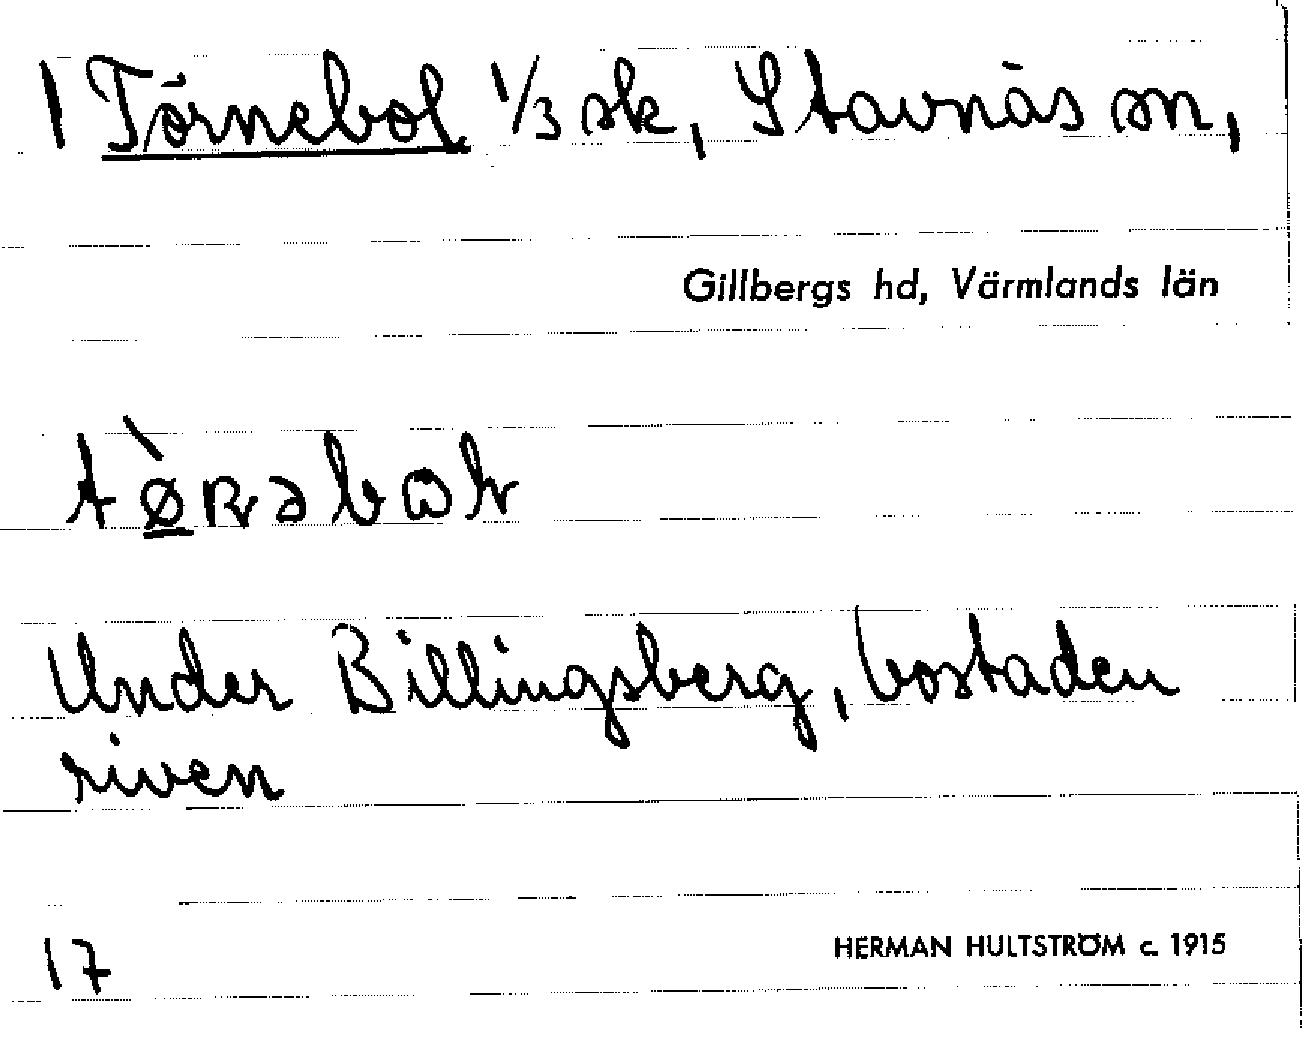 1 Törnebol 1/3 sk, Stavnäs sn,
Gillbergs hd, Värmlands län
Under Billingsberg, bostaden
riven
17
HERMAN HULTSTRÖM c. 1915